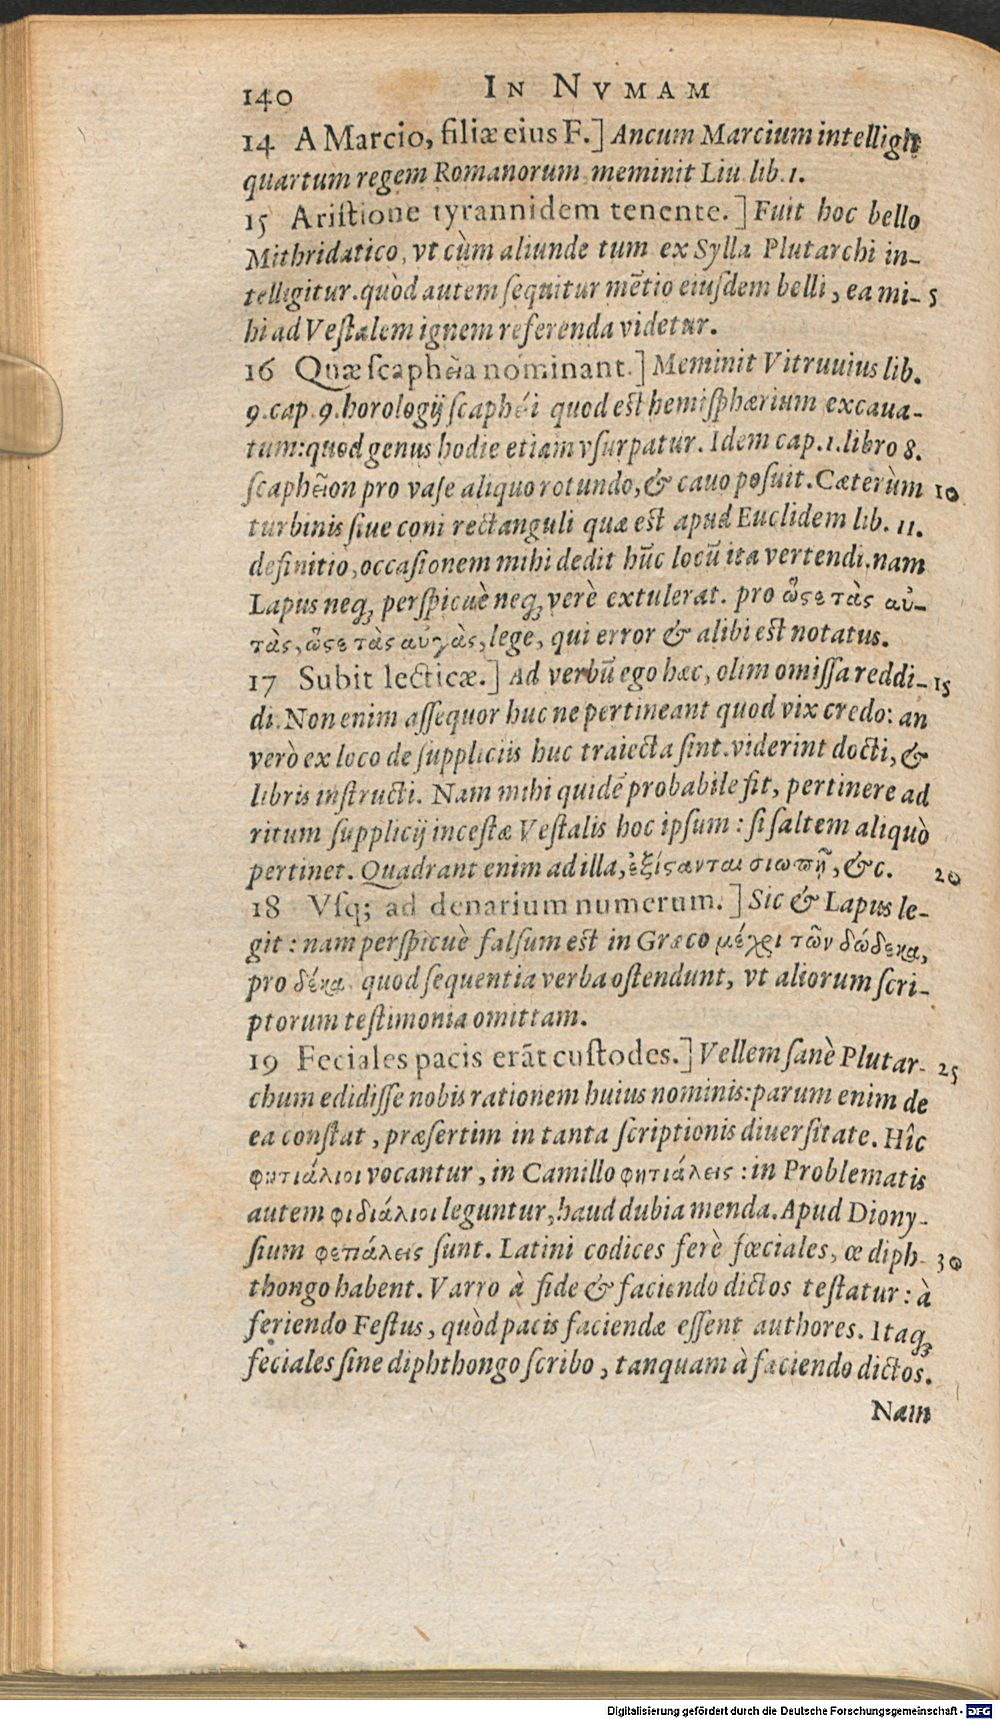 140 IN NVMAM
14 A Marcio, filiæ eius F.] Ancum Marcium intelligit
quartum regem Romanorum, meminit Liu. lib. 1.
15 Aristione tyrannidem tenente.] Fuit hoc bello
Mithridatico, vt cùm aliunde tum ex Sylla Plutarchi in-
telligitur. quòd autem sequitur mẽtio eiusdem belli, ea mi- 5
hi ad Vestalem ignem referenda videtur.
16 Quæ scaphēia nominant.] Meminit Vitruuius lib.
9. cap. 9. horologij scaphéi quod est hemisphærium excaua-
tum: quod genus hodie etiam vsurpatur. Idem cap. 1. libro 8.
scaphēion pro vase aliquo rotundo, & cauo posuit. Cæterùm 10
turbinis siue coni rectanguli quæ est apud Euclidem lib. 11.
definitio, occasionem mihi dedit hũc locũ ita vertendi. nam
Lapus neq; perspicuè neq; verè extulerat. pro ὥστε τὰς αὐ-
τὰς, ὥστε τὰς αὐγὰς, lege, qui error & alibi est notatus.
17 Subit lecticæ.] Ad verbũ ego hæc, olim omissa reddi- 15
di. Non enim assequor huc ne pertineant quod vix credo: an
verò ex loco de suppliciis huc traiecta sint. viderint docti, &
libris instructi. Nam mihi quidẽ probabile fit, pertinere ad
ritum supplicij incestæ Vestalis hoc ipsum: si saltem aliquò
pertinet. Quadrant enim ad illa, ἐξίστανται σιωπῇ, &c. 20
18 Vsq; ad denarium numerum.] Sic & Lapus le-
git: nam perspicuè falsum est in Græco μέχρι τῶν δώδεκα,
pro δέκα. quod sequentia verba ostendunt, vt aliorum scri-
ptorum testimonia omittam.
19 Feciales pacis erãt custodes.] Vellem sanè Plutar- 25
chum edidisse nobis rationem huius nominis: parum enim de
ea constat, præsertim in tanta scriptionis diuersitate. Hîc
φητιάλιοι vocantur, in Camillo φητιάλεις: in Problematis
autem φιδιάλιοι leguntur, haud dubia menda. Apud Diony-
sium φετιάλεις sunt. Latini codices ferè fœciales, œ diph- 30
thongo habent. Varro à fide & faciendo dictos testatur: à
feriendo Festus, quòd pacis faciendæ essent authores. Itaq;
feciales sine diphthongo scribo, tanquam à faciendo dictos.
Nam
Digitalisierung gefördert durch die Deutsche Forschungsgemeinschaft - DFG